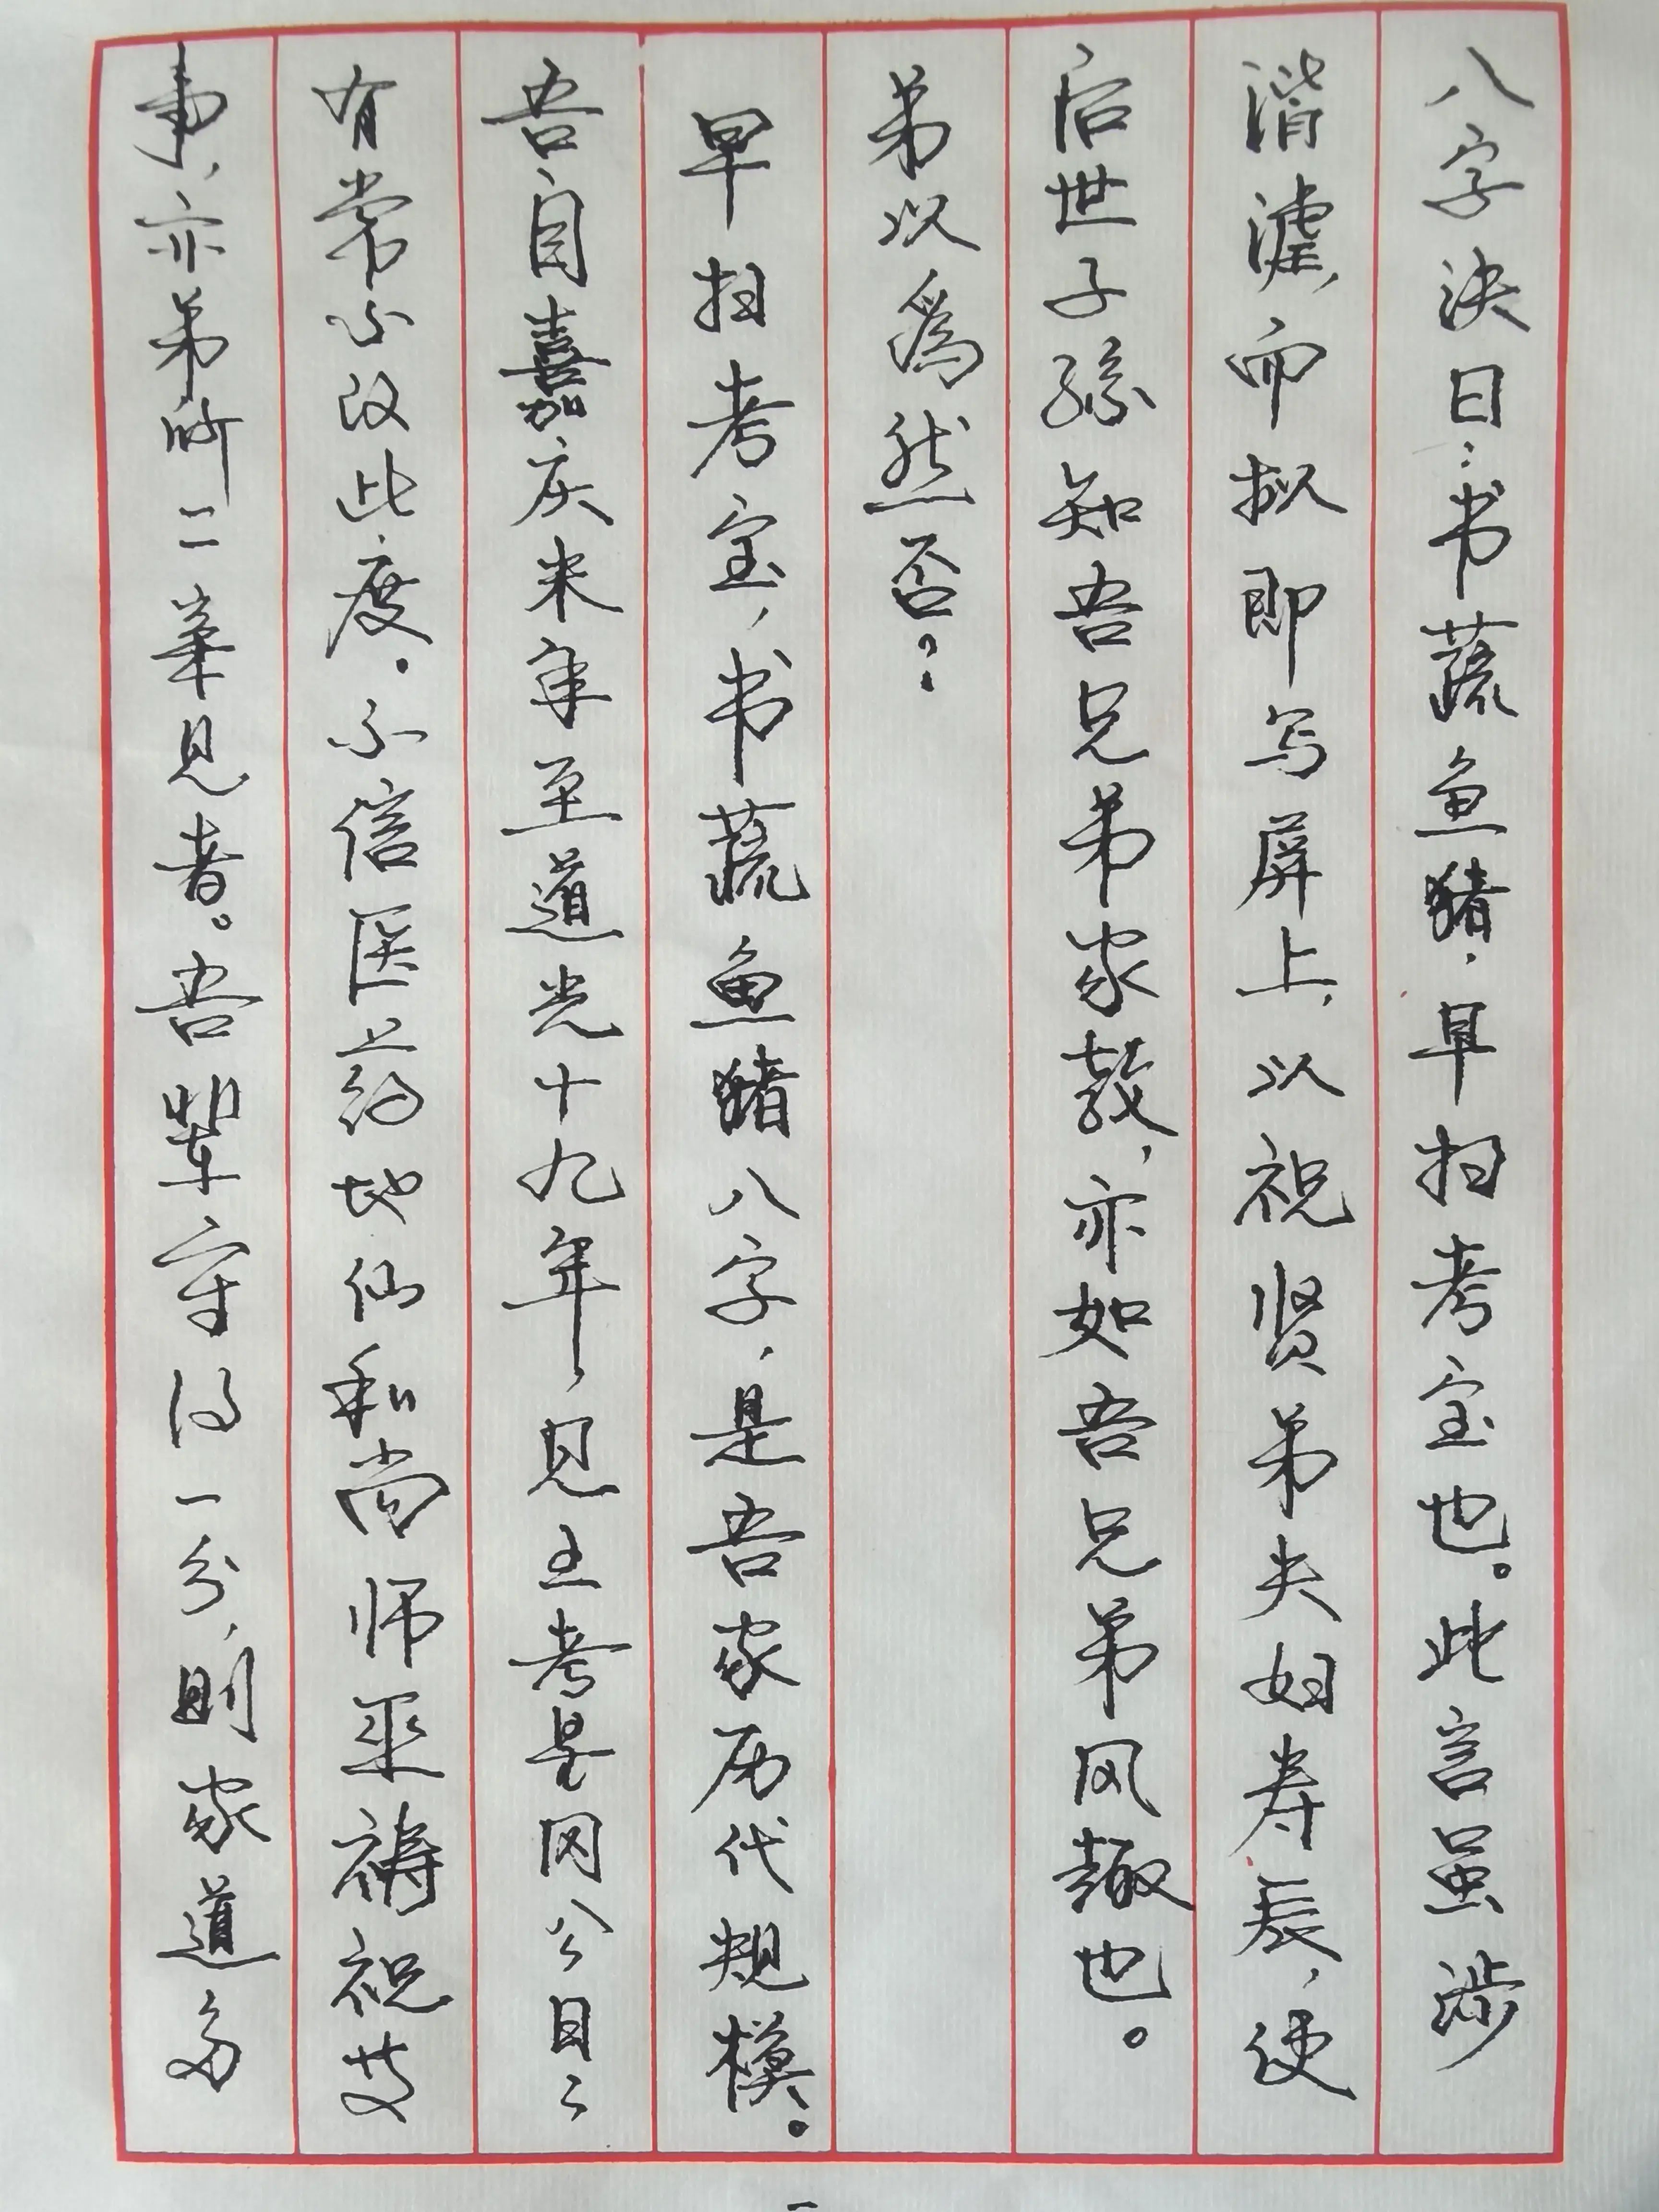 八字诀曰：书蔬鱼猪，早扫考宝也。此言虽涉
谐谑，而拟即写屏上，以祝贤弟夫妇寿辰，使
后世子孙知吾兄弟家教，亦如吾兄弟风趣也。
弟以为然否？
早扫考宝，书蔬鱼猪八字，是吾家历代规模。
吾自嘉庆末年至道光十九年，见王考星冈公日日
有常不改此度。不信医药地仙和尚师巫祷祝等
事，亦弟所一一亲见者。吾辈守得一分，则家道多